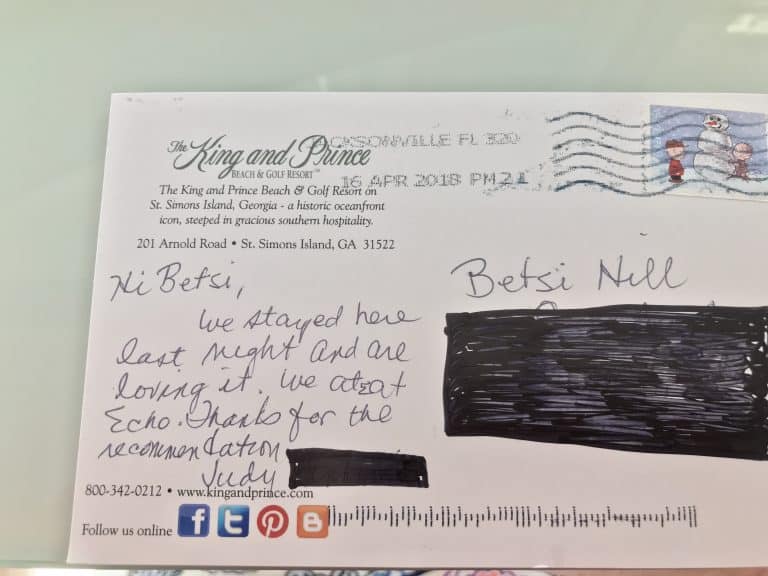 The King and Prince
BEACH & GOLF RESORT™
The King and Prince Beach & Golf Resort on
St. Simons Island, Georgia - a historic oceanfront
icon, steeped in gracious southern hospitality.
201 Arnold Road • St. Simons Island, GA 31522
ACKSONVILLE FL 320
16 APR 2018 PM 2 1
Hi Betsi,
We stayed here
last night and are
loving it. We ate at
Echo. Thanks for the
recommendation
Judy
Betsi Hill
800-342-0212 • www.kingandprince.com
Follow us online